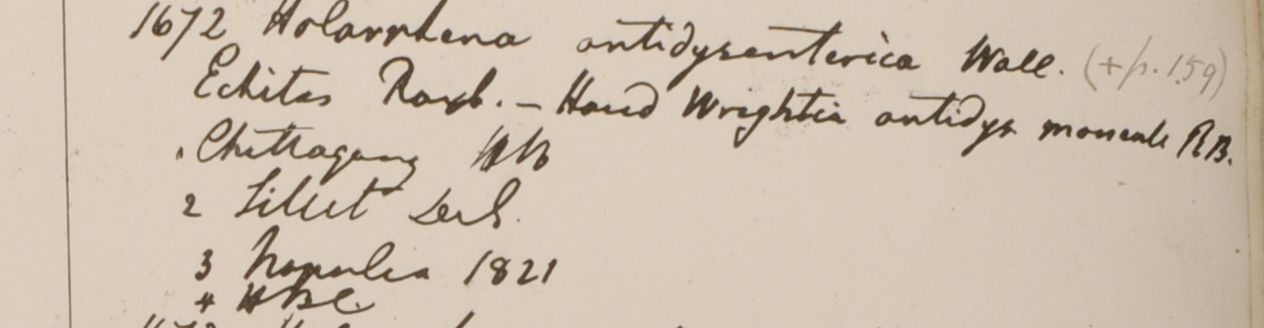 1672 Holarrhena antidysenterica Wall. (+ p. 159)
Echites Roxb. – Haud Wrightia antidys monente RB.
. Chittagong HB
2 Sillet
3 Napalia 1821
4 HBC.